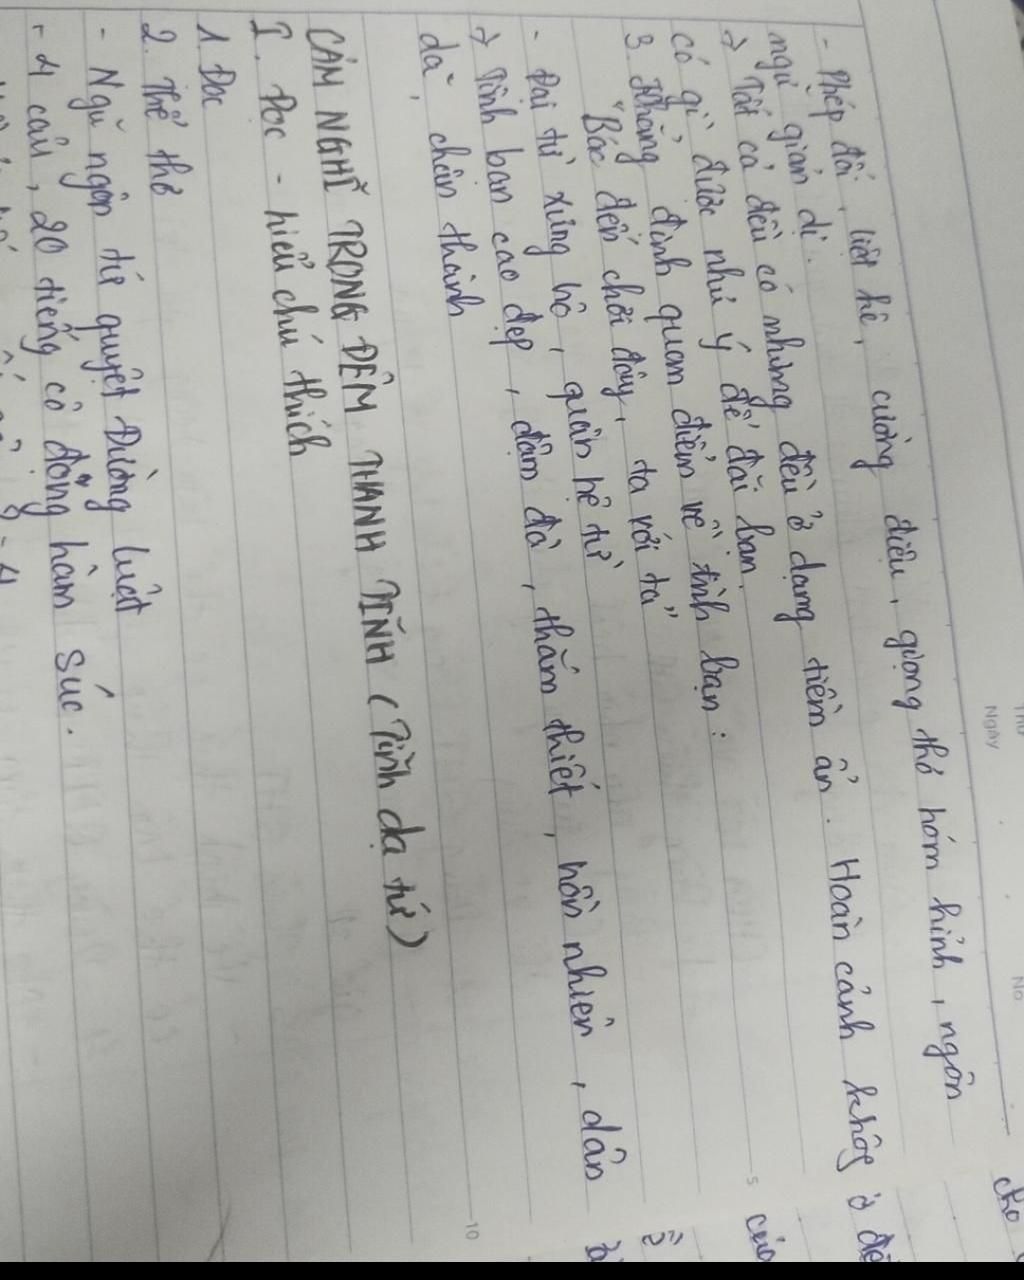 Thứ
Ngày
No
- Phép đối, liệt kê, cường điệu, giọng thơ hóm hỉnh, ngôn
ngữ giản dị.
→ Tất cả đều có nhưng đều ở dạng tiềm ẩn. Hoàn cảnh không
có gì được như ý để đãi bạn.
3. Khẳng định quan điểm về tình bạn:
"Bác đến chơi đây, ta với ta"
- Đại từ xưng hô, quan hệ từ
→ Tình bạn cao đẹp, đậm đà, thắm thiết, hồn nhiên, dân
dã, chân thành
CẢM NGHĨ TRONG ĐÊM THANH TĨNH (Tĩnh dạ tứ)
I. Đọc - hiểu chú thích
1. Đọc
2. Thể thơ
- Ngũ ngôn tứ quyệt Đường luật
- 4 câu, 20 tiếng cô đọng hàm súc.
5
10
cho
của